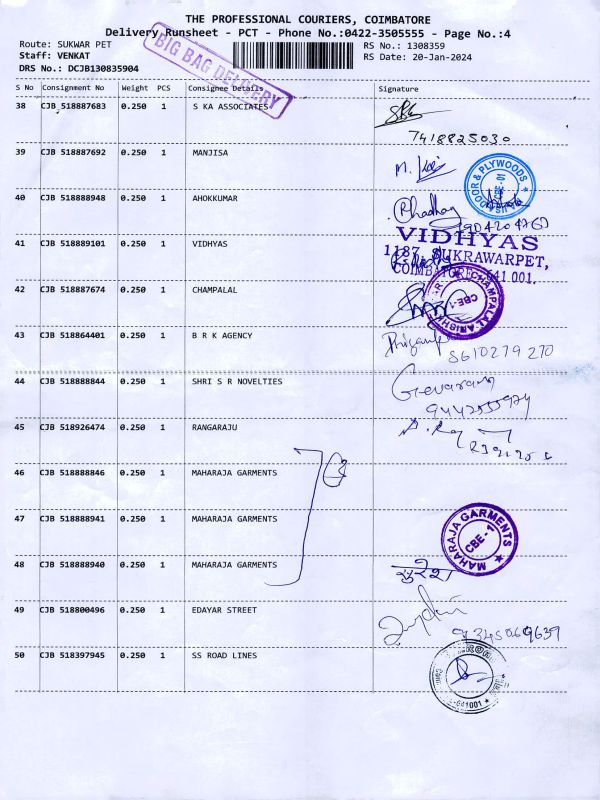 THE PROFESSIONAL COURIERS, COIMBATORE
Delivery Runsheet - PCT - Phone No.:0422-3505555 - Page No.:4
Route: SUKWAR PET
RS No.: 1308359
Staff: VENKAT
RS Date: 20-Jan-2024
DRS No.: DCJB130835904
BIG BAG DELIVERY
S No Consignment No Weight PCS Consignee Details Signature
38 CJB 518887683 0.250 1 S KA ASSOCIATES
7418825030
39 CJB 518887692 0.250 1 MANJISA
DOOR & PLYWOODS
CBE-01
40 CJB 518888948 0.250 1 AHOKKUMAR
41 CJB 518889101 0.250 1 VIDHYAS
VIDHYAS
1187, SUKRAWARPET,
COIMBATORE-641 001.
42 CJB 518887674 0.250 1 CHAMPALAL
CHAMPALAL
CBE-1
43 CJB 518864401 0.250 1 B R K AGENCY
8610279270
44 CJB 518888844 0.250 1 SHRI S R NOVELTIES
45 CJB 518926474 0.250 1 RANGARAJU
46 CJB 518888846 0.250 1 MAHARAJA GARMENTS
47 CJB 518888941 0.250 1 MAHARAJA GARMENTS
MAHARAJA GARMENTS
CBE-1
48 CJB 518888940 0.250 1 MAHARAJA GARMENTS
सुरेश
49 CJB 518800496 0.250 1 EDAYAR STREET
9345069639
50 CJB 518397945 0.250 1 SS ROAD LINES
641001